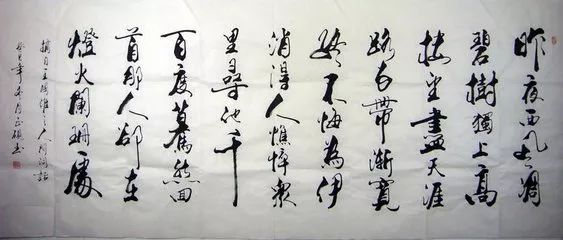 昨夜西风凋
碧樹獨上高
樓望盡天涯
路衣帶漸寬
終不悔為伊
消得人憔悴衆
里尋他千
百度驀然回
首那人卻在
燈火闌珊處
摘自王國維之人间词話
年冬月书